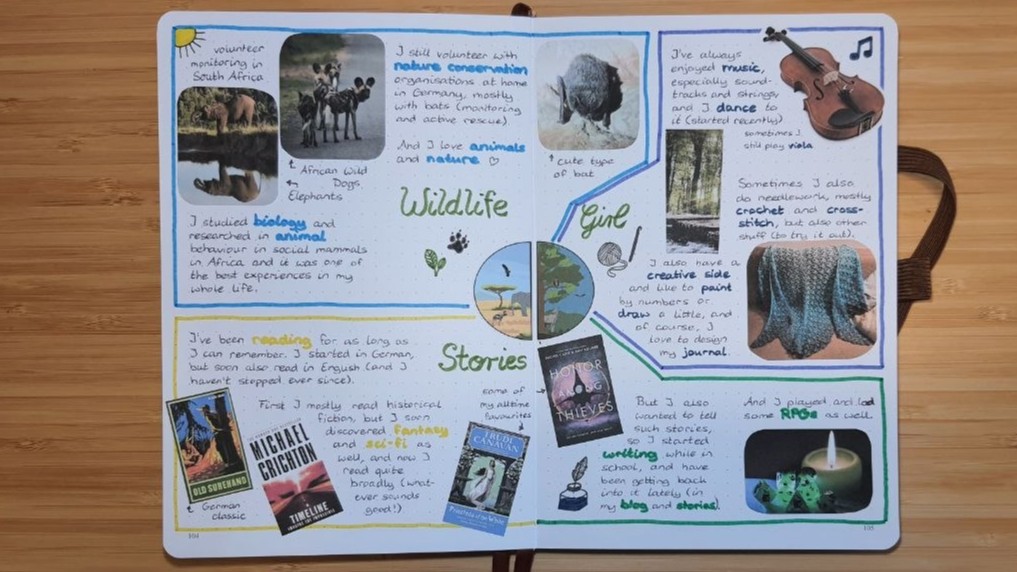 volunteer
monitoring in
South Africa
African Wild
Dogs
Elephants
I still volunteer with
nature conservation
organisations at home
in Germany, mostly
with bats (monitoring
and active rescue)
And I love animals
and nature ♡
cute type
of bat
Wildlife
I studied biology and
researched in animal
behaviour in social mammals
in Africa and it was one of
the best experiences in my
whole life.
Girl
I've always
enjoyed music,
especially sound-
tracks and strings,
and I dance to
it (started recently)
sometimes I
still play viola
Sometimes I also
do needlework, mostly
crochet and cross-
stitch, but also other
stuff (to try it out).
I also have a
creative side
and like to paint
by numbers or
draw a little, and
of course, I
love to design
my journal.
I've been reading for as long as
I can remember. I started in German,
but soon also read in English (and I
haven't stopped ever since).
Stories
First I mostly read historical
fiction, but I soon
discovered fantasy
and sci-fi as
well, and now I
read quite
broadly (what-
ever sounds
good!)
OLD SUREHAND
German
classic
MICHAEL
CRICHTON
TIMELINE
some of
my alltime
favourites
TRUDI
CANAVAN
HONOR
AMONG
THIEVES
But I also
wanted to tell
such stories,
so I started
writing while in
school, and have
been getting back
into it lately (in
my blog and stories).
And I played and led
some RPGs as well.
104
105